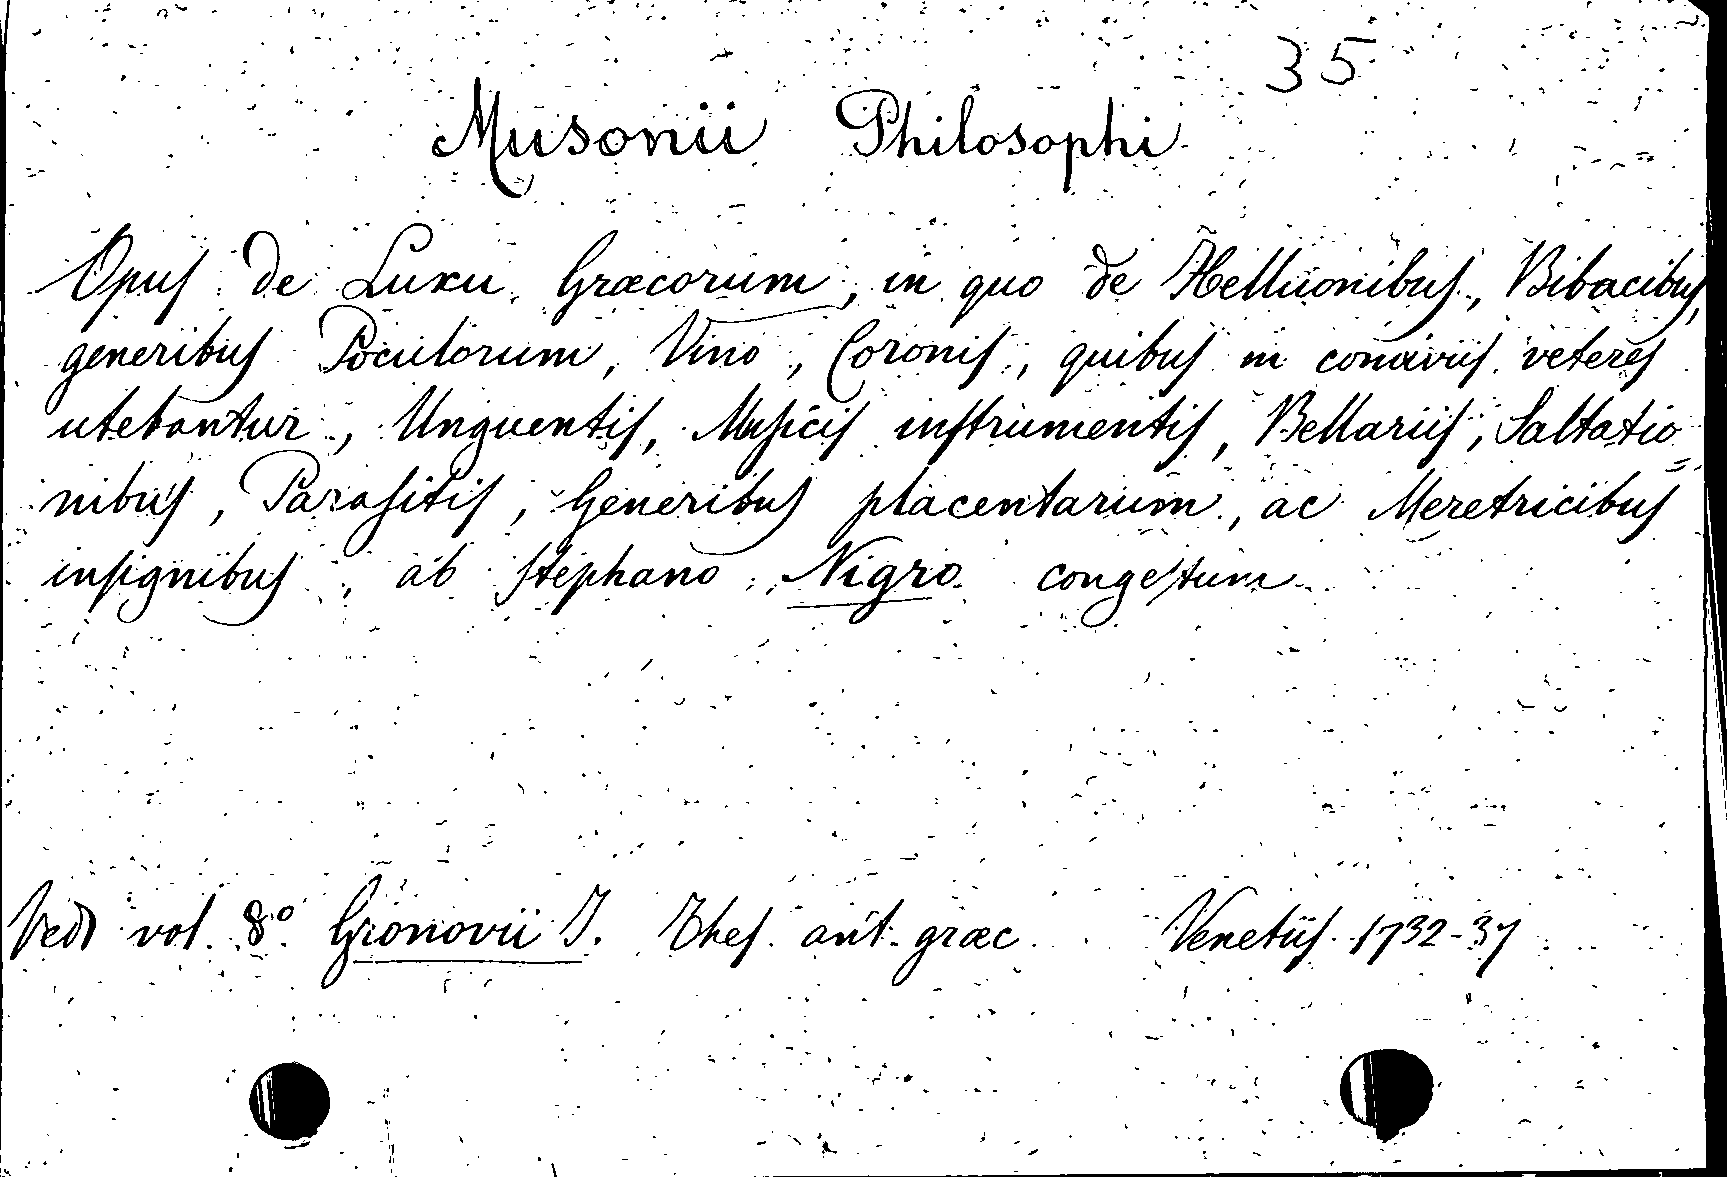 35
Musonii Philosophi
Opus de Luxu Græcorum, in quo de Helluonibus, Bibacibus,
generibus Poculorum, Vino, Coronis, quibus in conviviis veteres
utebantur, Unguentis, Musicis instrumentis, Bellariis, Saltatio=
nibus, Parasitis, Generibus placentarum, ac Meretricibus
insignibus, ab Stephano Nigro congestum
Vedi vol. 8º. Gronovii J. Thes. ant. græc. Venetiis 1732-37